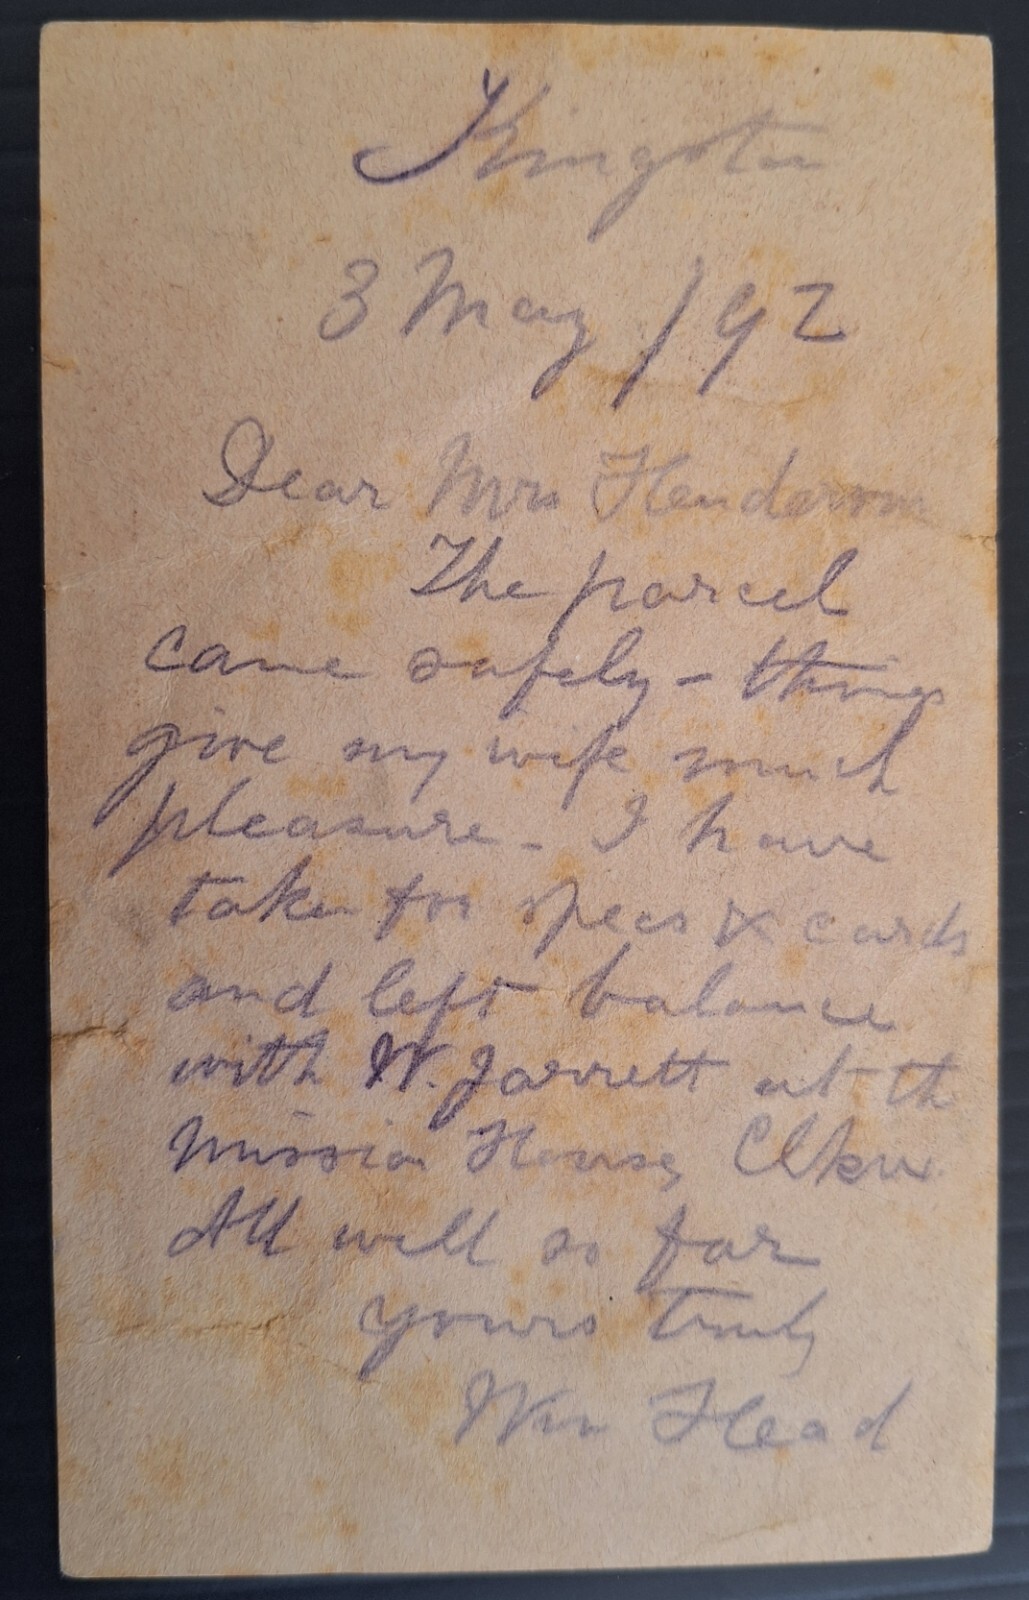 Kingston
3 May / 92
Dear Mrs Henderson
The parcel
came safely - things
give my wife much
pleasure - I have
taken for specs & cards
and left balance
with W. Jarrett at th
Mission House,
All well so far
Yours truly
Wm Head